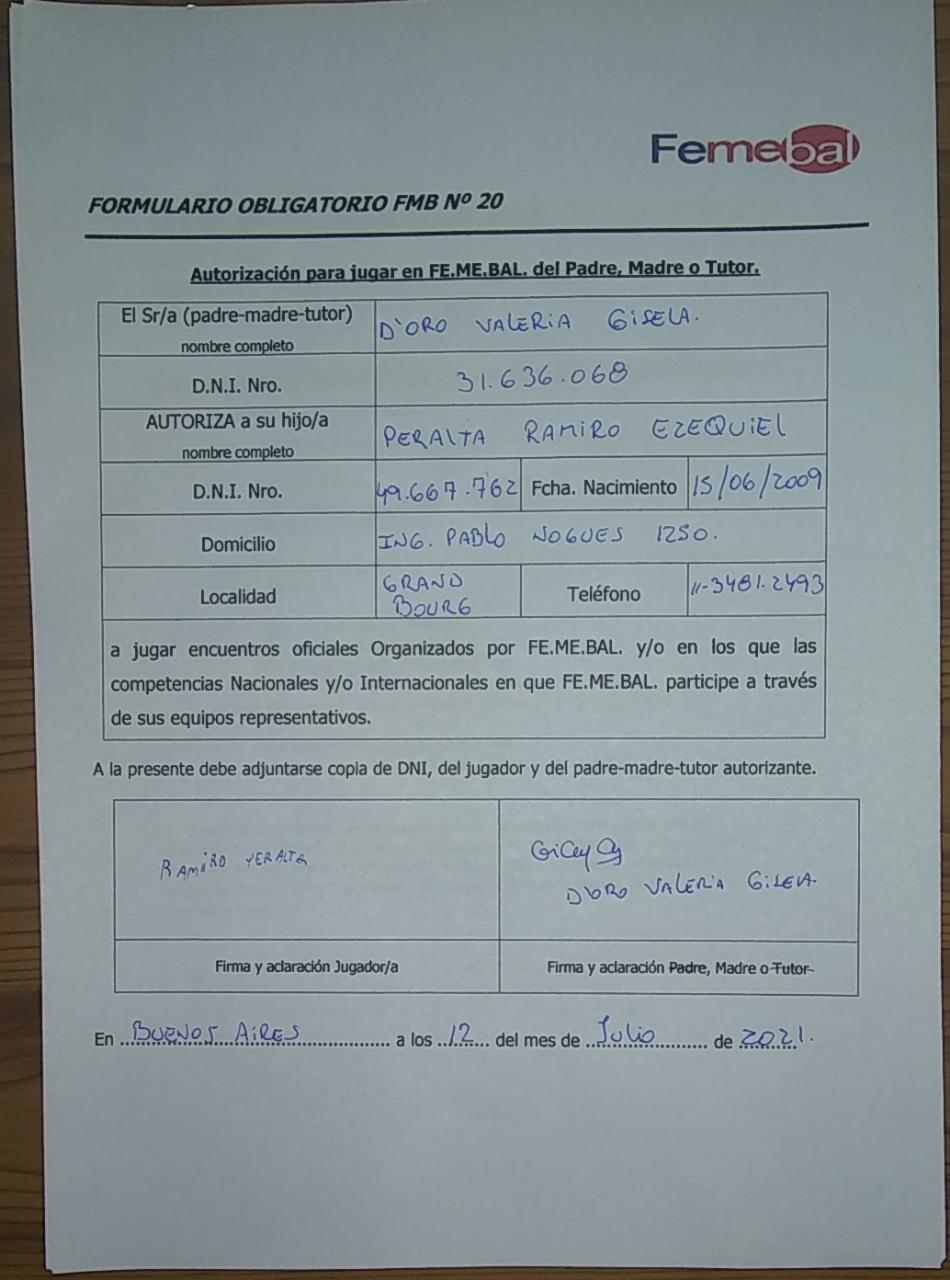 Femebal
FORMULARIO OBLIGATORIO FMB Nº 20
Autorización para jugar en FE.ME.BAL. del Padre, Madre o Tutor.
El Sr/a (padre-madre-tutor)
nombre completo
D'ORO VALERIA GISELA.
D.N.I. Nro.
31.636.068
AUTORIZA a su hijo/a
nombre completo
PERALTA RAMIRO EZEQUIEL
D.N.I. Nro.
49.667.762
Fcha. Nacimiento
15/06/2009
Domicilio
ING. PABLO NOGUES 1250.
Localidad
GRAND
BOURG
Teléfono
11-3481.2493
a jugar encuentros oficiales Organizados por FE.ME.BAL. y/o en los que las
competencias Nacionales y/o Internacionales en que FE.ME.BAL. participe a través
de sus equipos representativos.
A la presente debe adjuntarse copia de DNI, del jugador y del padre-madre-tutor autorizante.
RAMIRO PERALTA
D'ORO VALERIA GISELA.
Firma y aclaración Jugador/a
Firma y aclaración Padre, Madre o Tutor
En BUENOS AIRES a los 12 del mes de Julio de 2021.